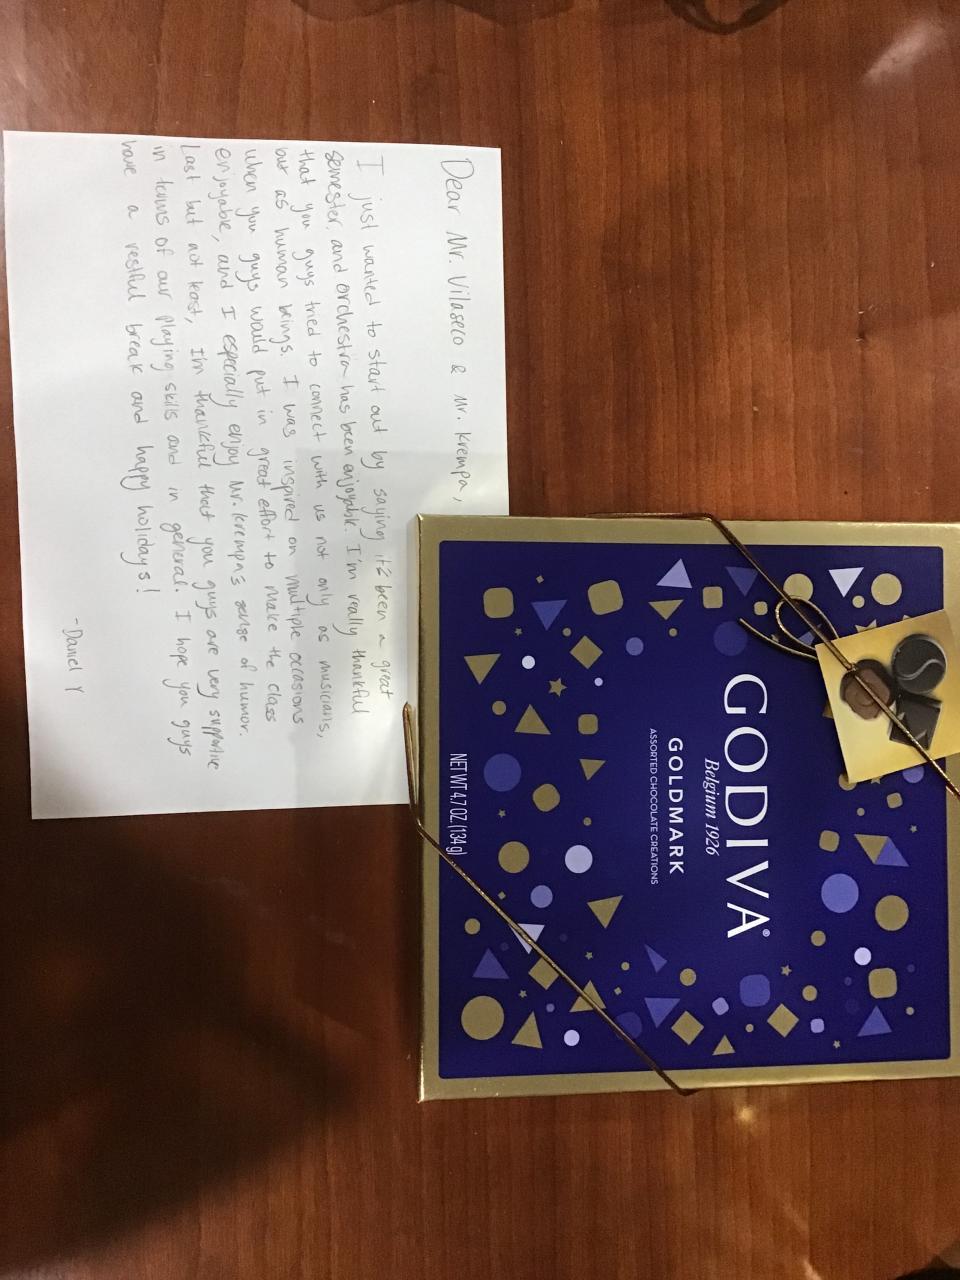 Dear Mr. Vilaseco & Mr. Krempa,
I just wanted to start out by saying it's been a great
semester, and orchestra has been enjoyable. I'm really thankful
that you guys tried to connect with us not only as musicians,
but as human beings. I was inspired on multiple occasions
when you guys would put in great effort to make the class
enjoyable, and I especially enjoy Mr. Krempa's sense of humor.
Last but not least, I'm thankful that you guys are very supportive
in terms of our playing skills and in general. I hope you guys
have a restful break and happy holidays!
-Daniel Y
GODIVA®
Belgium 1926
GOLDMARK
ASSORTED CHOCOLATE CREATIONS
NET WT 4.7 OZ. (134g)